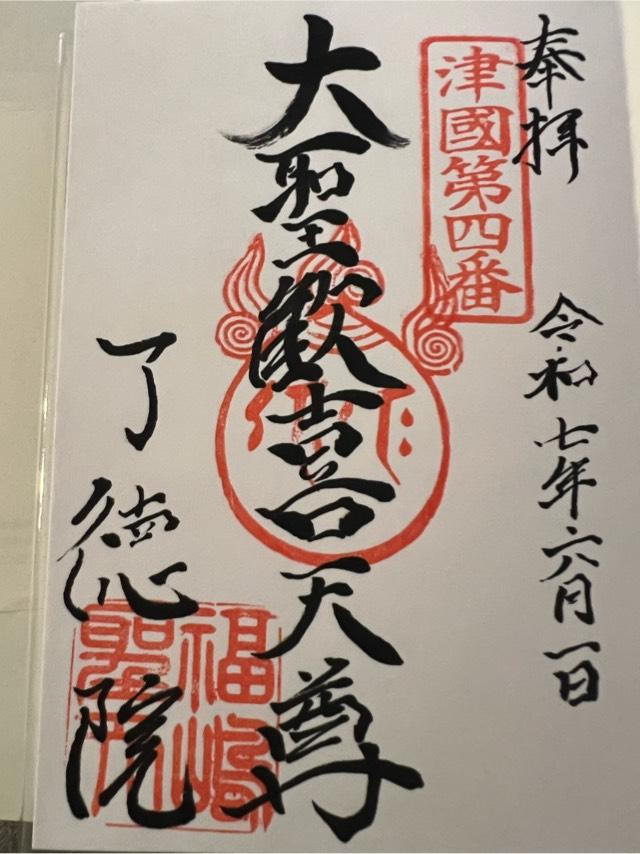 奉拝
令和七年六月一日
津國第四番
大聖歓喜天尊
了徳院
福嶋
聖天